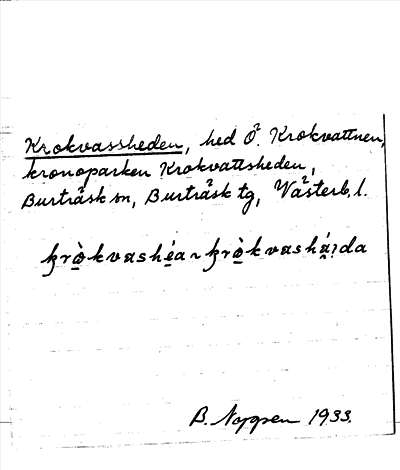 Krokvassheden, hed Ö. Krokvattnen,
kronoparken Krokvattsheden,
Burträsk sn, Burträsk tg, Västerb. l.
krò̱kvashé̱a ~ krò̱kvashá̱ɂda
B. Nygren 1933.